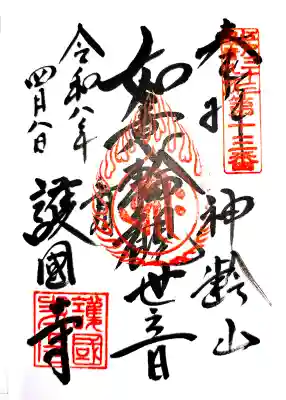 奉拝
神齢山
如意輪観世音
令和八年
四月八日
護國寺
第十三番
護國